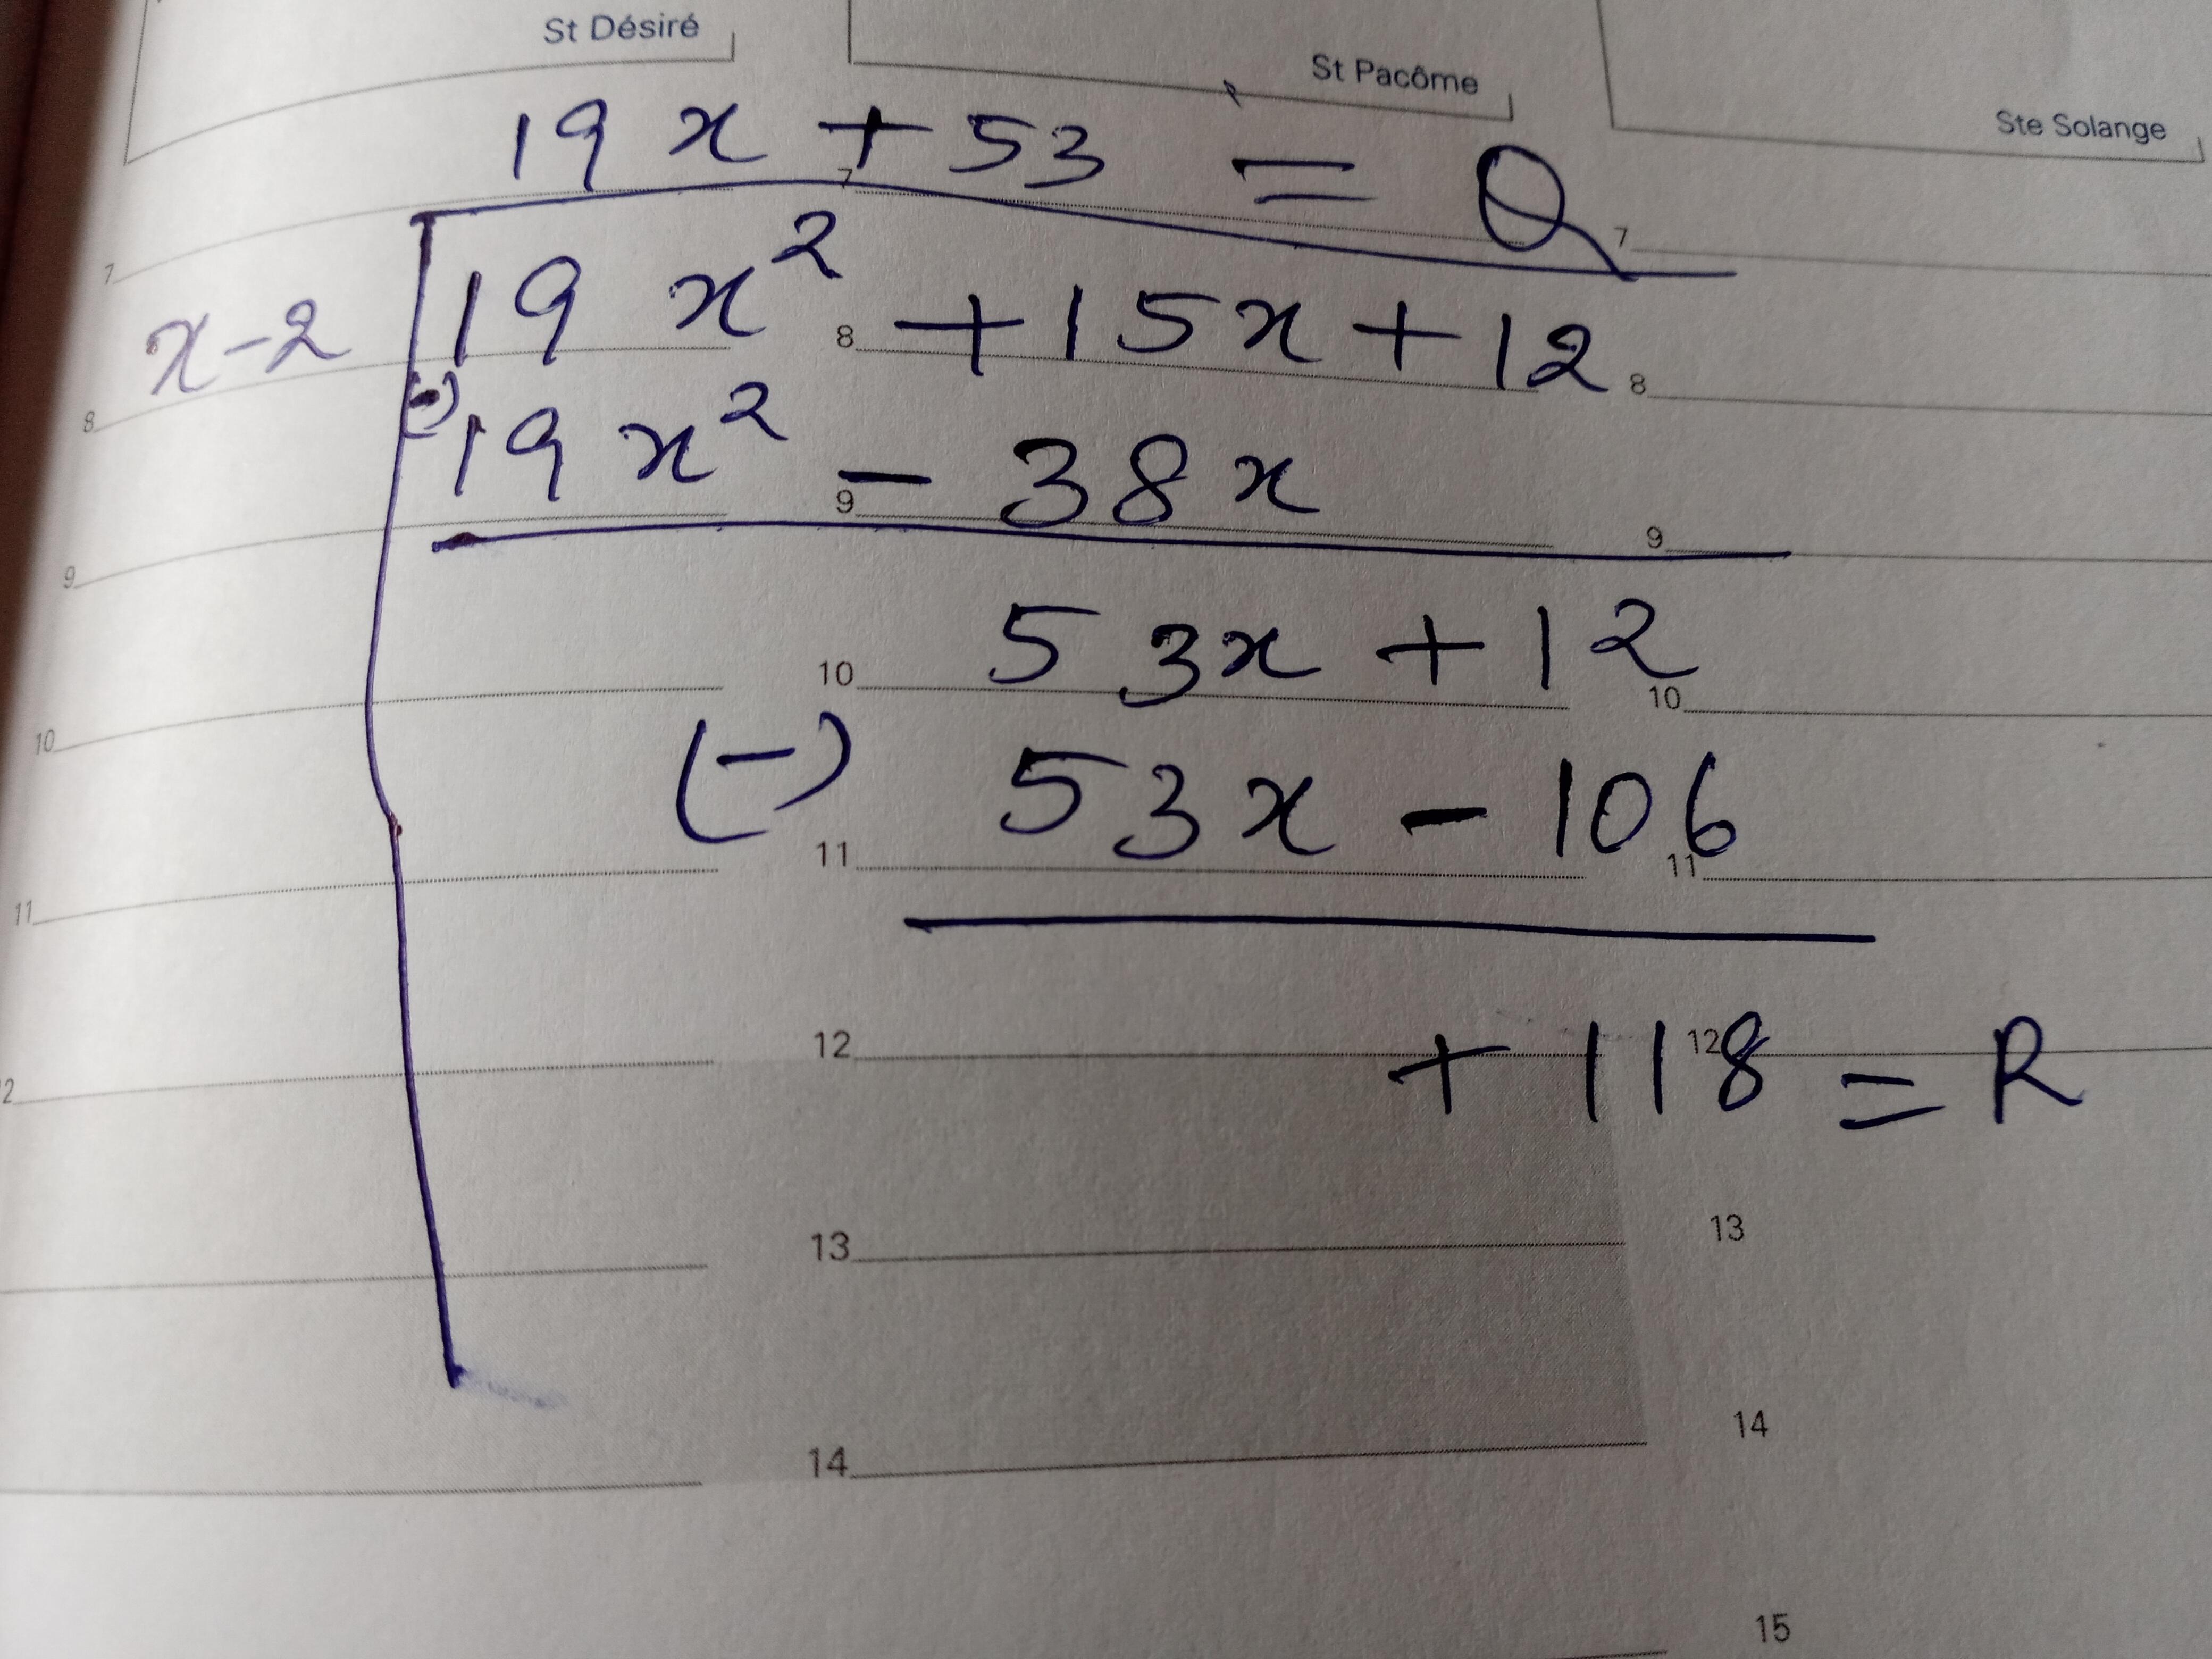 St Désiré
St Pacôme
Ste Solange
19x + 53 = Q
7 7 7
x-2 19x² + 15x + 12
8 8 8
(-) 19x² - 38x
9 9 9
53x + 12
10 10 10
(-) 53x - 106
11 11 11
+ 118 = R
2 12 12
13 13
14 14
15